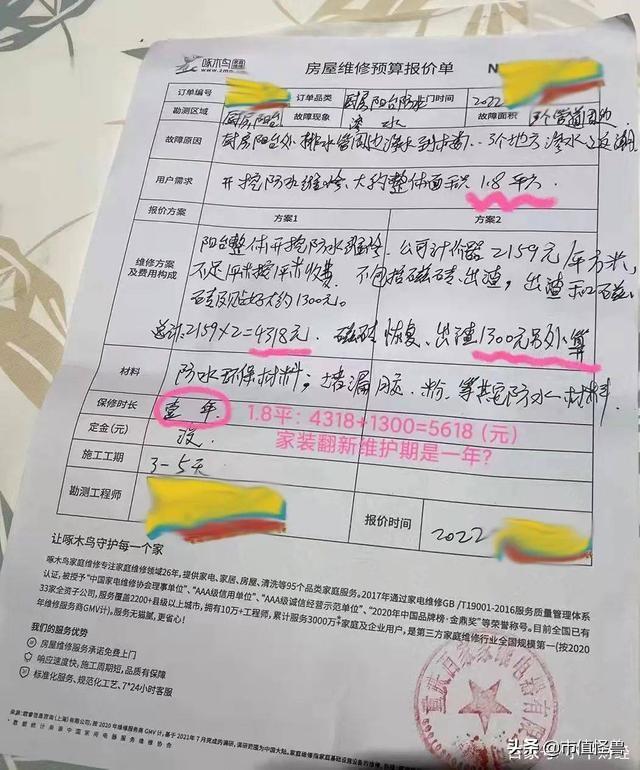 啄木鸟
房屋维修预算报价单
N
订单编号
订单品类
厨房阳台防水
门时间
2022
勘测区域
厨房阳台
故障现象
渗水
故障面积
3个管道周边
故障原因
厨房阳台外排水管周边渗水到楼
3个地方渗水
用户需求
开挖防水维修、大约整体面积 1.8平方
报价方案
方案1
方案2
维修方案
及费用构成
阳台整体开挖防水维修.公司计价器2159元/平方米,
不足1平米按1平米收费.不包括磁砖、出渣,出渣和
1300元。
总计:2159×2=4318元. 磁砖恢复、出渣1300元另外算
材料
防水环保材料;堵漏 胶、粉、等 防水 材料
保修时长
壹年
1.8平:4318+1300=5618(元)
家装翻新维护期是一年?
定金(元)
没
施工工期
3-5天
勘测工程师
报价时间
2022
让啄木鸟守护每一个家
啄木鸟家庭维修专注家庭维修领域26年,提供家电、家居、房屋、清洗等95个品类家庭服务。2017年通过家电维修GB/T19001-2016服务质量管理体系
认证,被授予“中国家电维修协会理事单位”、“AAA级信用单位”、“AAA级诚信经营示范单位”、“2020年中国品牌榜·金鼎奖”等荣誉称号。目前全国已有
33家全资子公司,服务覆盖2200+县级以上城市,拥有10万+工程师,累计服务3000万+家庭及企业用户,是第三方家庭维修行业全国规模第一(按2020
年维修服务商GMV计)。服务无猫腻,更省心!
我们的服务优势
房屋维修服务承诺免费上门
响应速度快,施工周期短,品质有保障
标准化服务、规范化工艺、7*24小时客服
头条 @市值怪兽